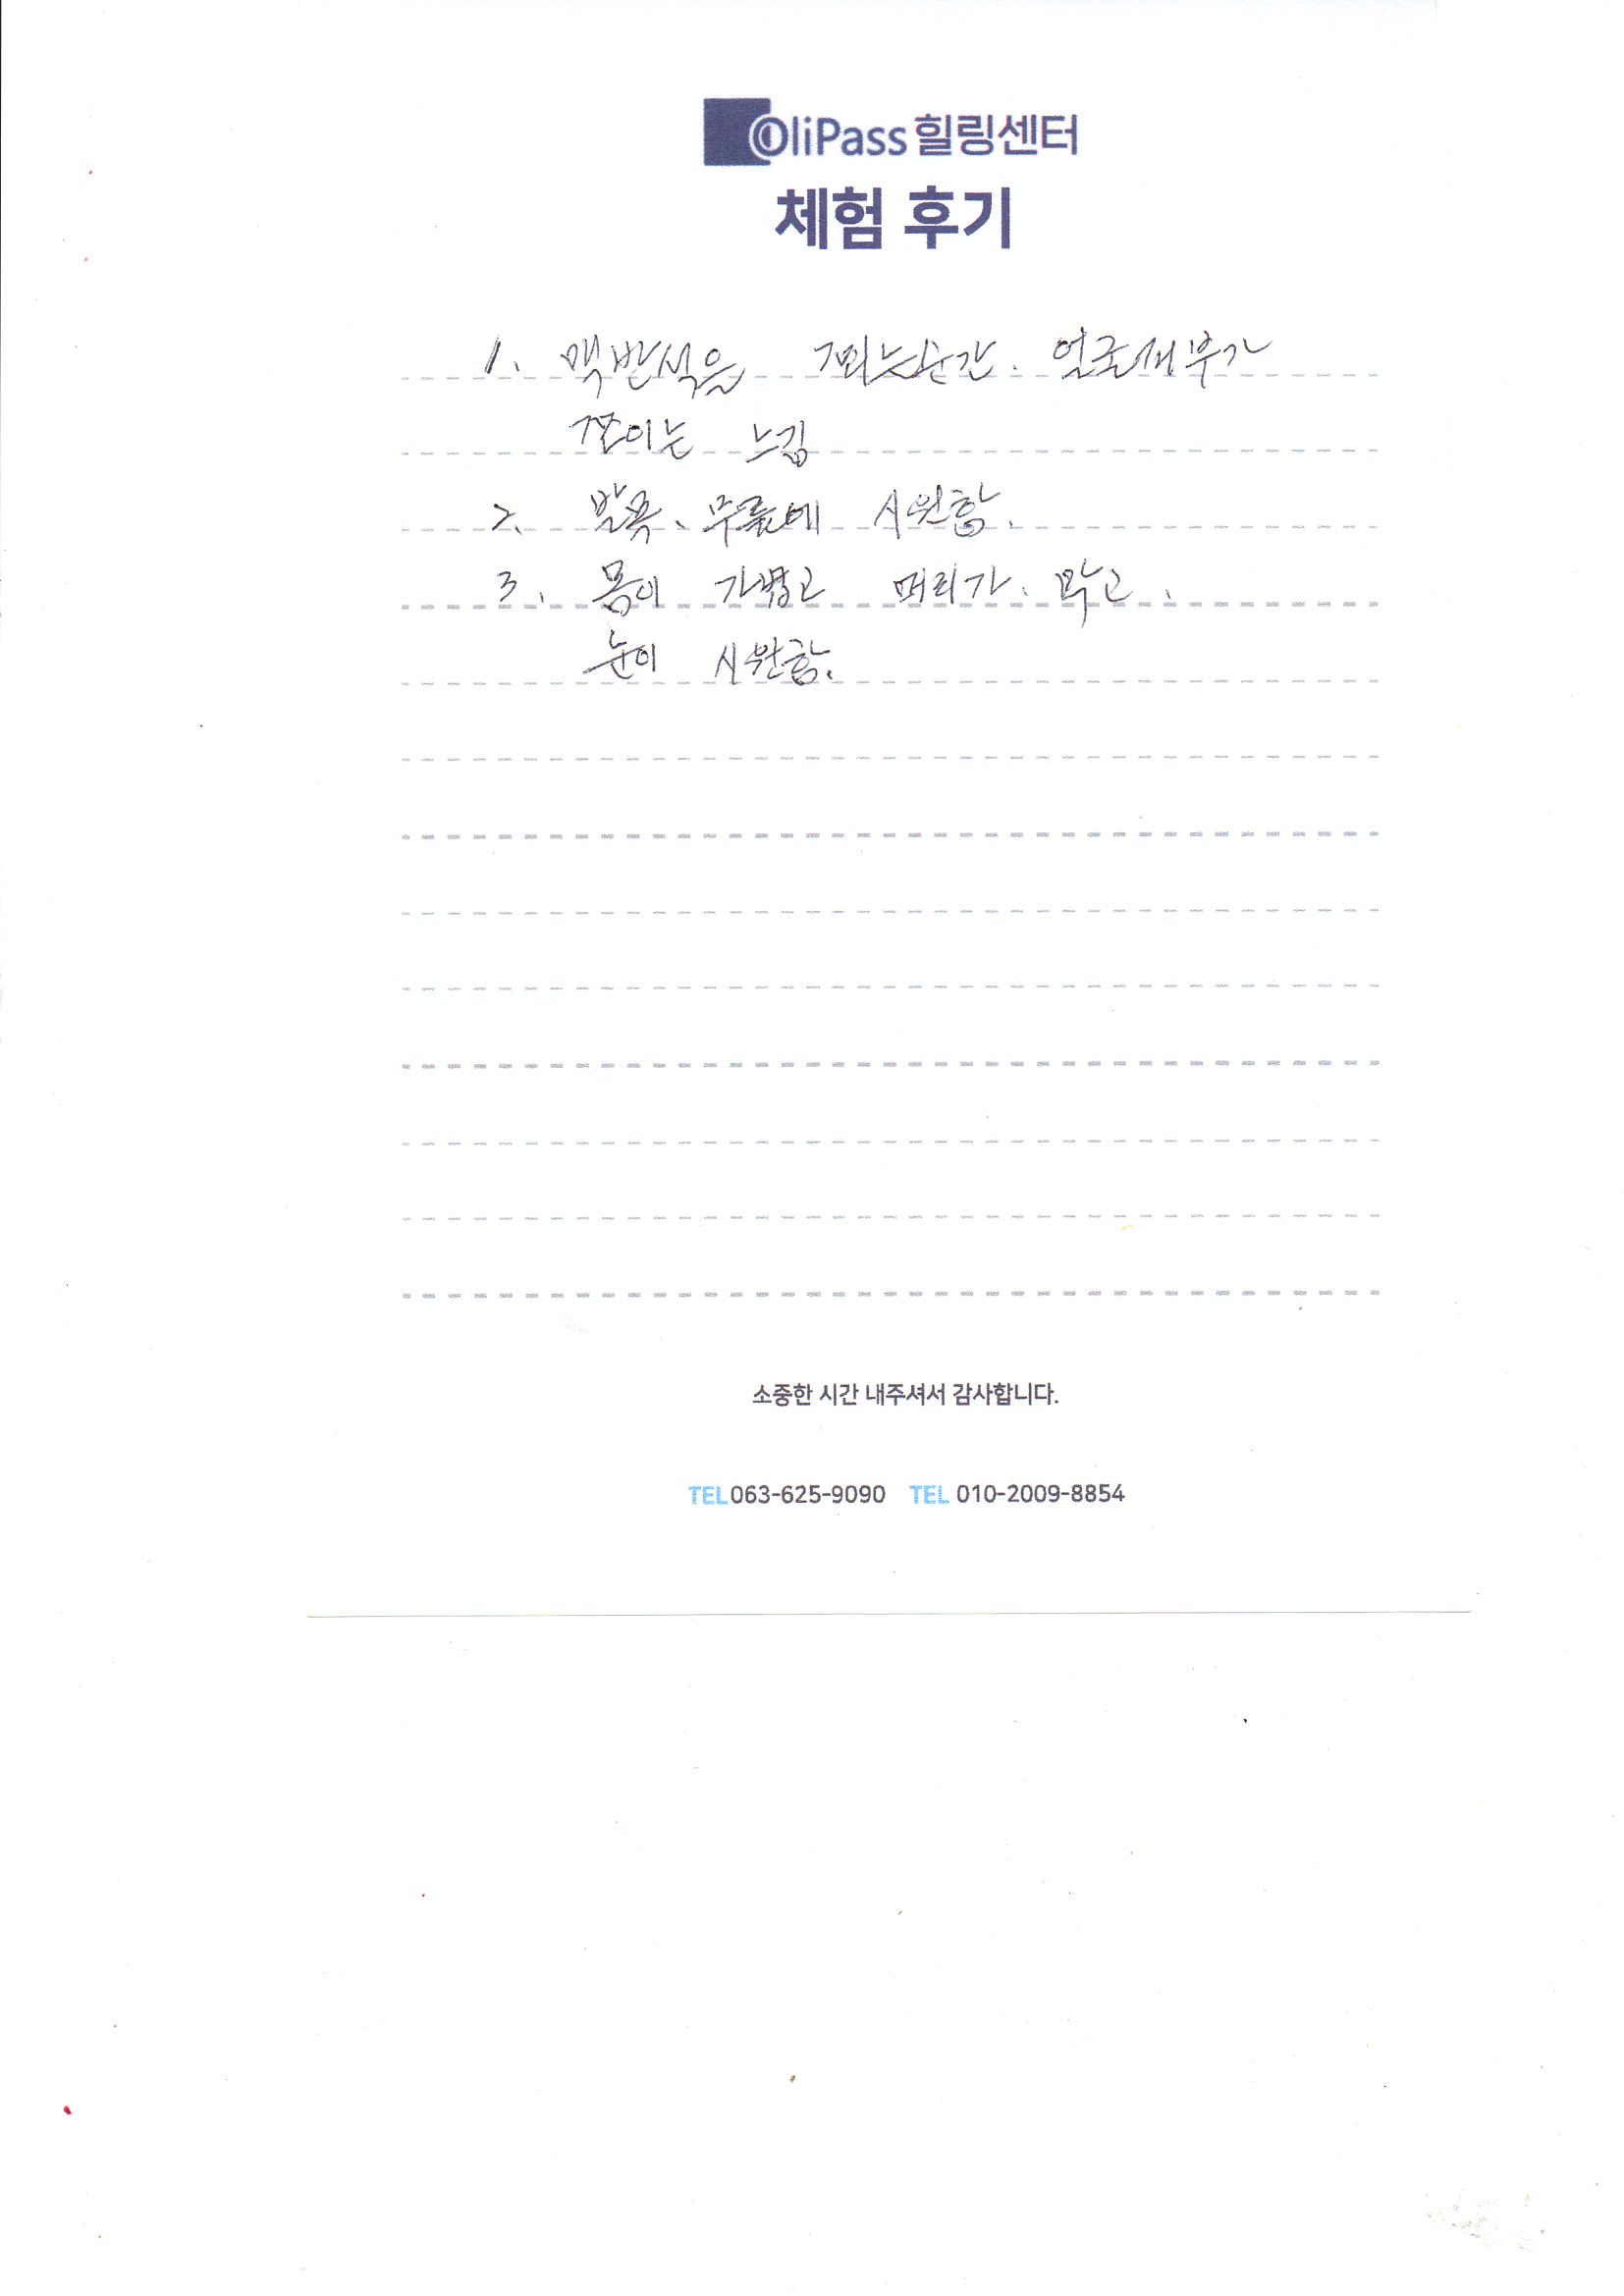 OliPass 힐링센터
체험 후기
1. 맥반석을 순간. 얼굴세부가
느낌
2. 발목、무릎에 시원함.
3. 몸이 가볍고 머리가. 맑고.
눈이 시원함.
소중한 시간 내주셔서 감사합니다.
TEL 063-625-9090 TEL 010-2009-8854